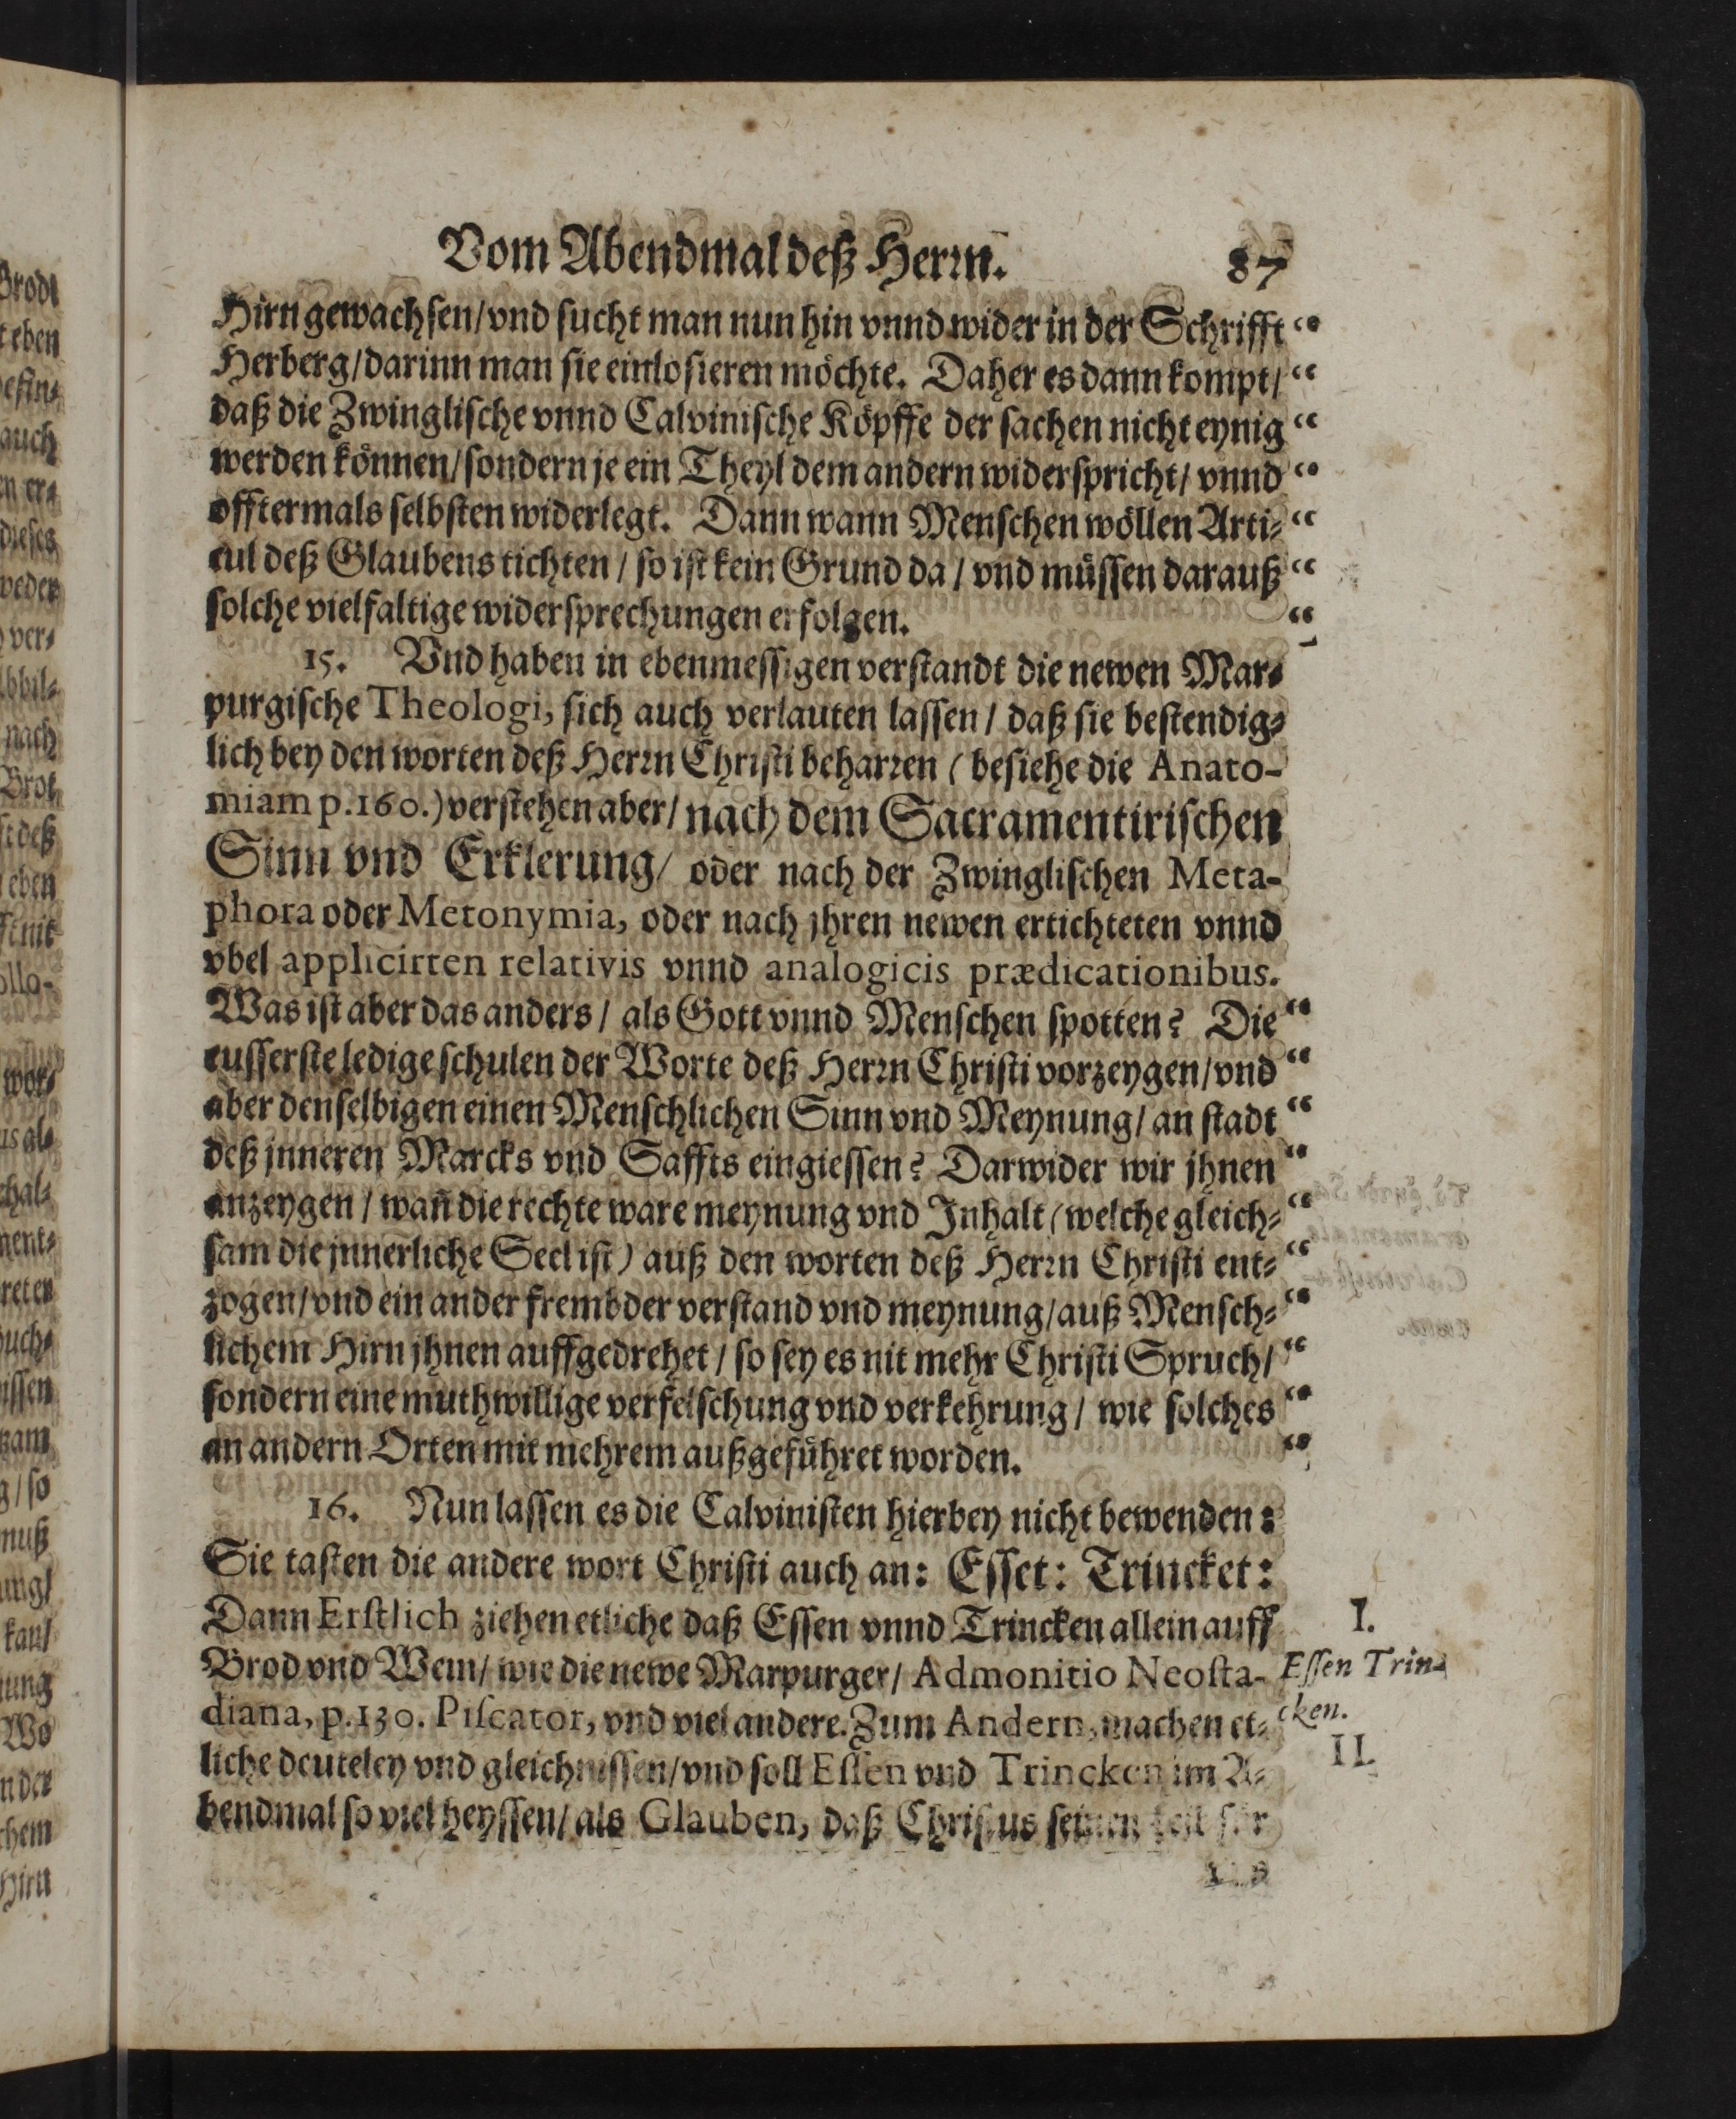 Vom Abendmal deß Herrn. 87
Hirn gewachsen/ vnd sucht man nun hin vnnd wider in der Schrifft “
Herberg/ darinn man sie einlosieren möchte. Daher es dann kompt/ “
daß die Zwinglische vnnd Calvinische Köpffe der sachen nicht eynig “
werden können/ sondern je ein Theyl dem andern widerspricht/ vnnd “
offtermals selbsten widerlegt. Dann wann Menschen wöllen Arti- “
cul deß Glaubens tichten / so ist kein Grund da / vnd müssen darauß “
solche vielfaltige widersprechungen erfolgen. “
15. Vnd haben in ebenmessigen verstandt die newen Mar-
purgische Theologi, sich auch verlauten lassen / daß sie bestendig-
lich bey den worten deß Herrn Christi beharren (besiehe die Anato-
miam p.160.) verstehen aber/ nach dem Sacramentirischen
Sinn vnd Erklerung/ oder nach der Zwinglischen Meta-
phora oder Metonymia, oder nach jhren newen ertichteten vnnd
vbel applicirten relativis vnnd analogicis prædicationibus.
Was ist aber das anders / als Gott vnnd Menschen spotten? Die “
eusserste ledige schulen der Worte deß Herrn Christi vorzeygen/ vnd “
aber denselbigen einen Menschlichen Sinn vnd Meynung/ an stadt “
deß jnneren Marcks vnd Saffts eingiessen? Darwider wir jhnen “
anzeygen / wañ die rechte ware meynung vnd Inhalt (welche gleich- “
sam die jnnerliche Seel ist) auß den worten deß Herrn Christi ent- “
zogen/ vnd ein ander frembder verstand vnd meynung/ auß Mensch- “
lichem Hirn jhnen auffgedrehet / so sey es nit mehr Christi Spruch/ “
sondern eine muthwillige verfelschung vnd verkehrung / wie solches “
an andern Orten mit mehrem außgeführet worden. “
16. Nun lassen es die Calvinisten hierbey nicht bewenden:
Sie tasten die andere wort Christi auch an: Esset: Trincket:
Dann Erstlich ziehen etliche daß Essen vnnd Trincken allein auff
I.
Brod vnd Wein/ wie die newe Marpurger/ Admonitio Neosta-
Essen Trin-
diana, p.130. Piscator, vnd viel andere. Zum Andern, machen et-
cken.
liche deuteley vnd gleichnissen/ vnd soll Essen vnd Trincken im A-
II.
bendmal so viel heyssen/ als Glauben, daß Christus seinen